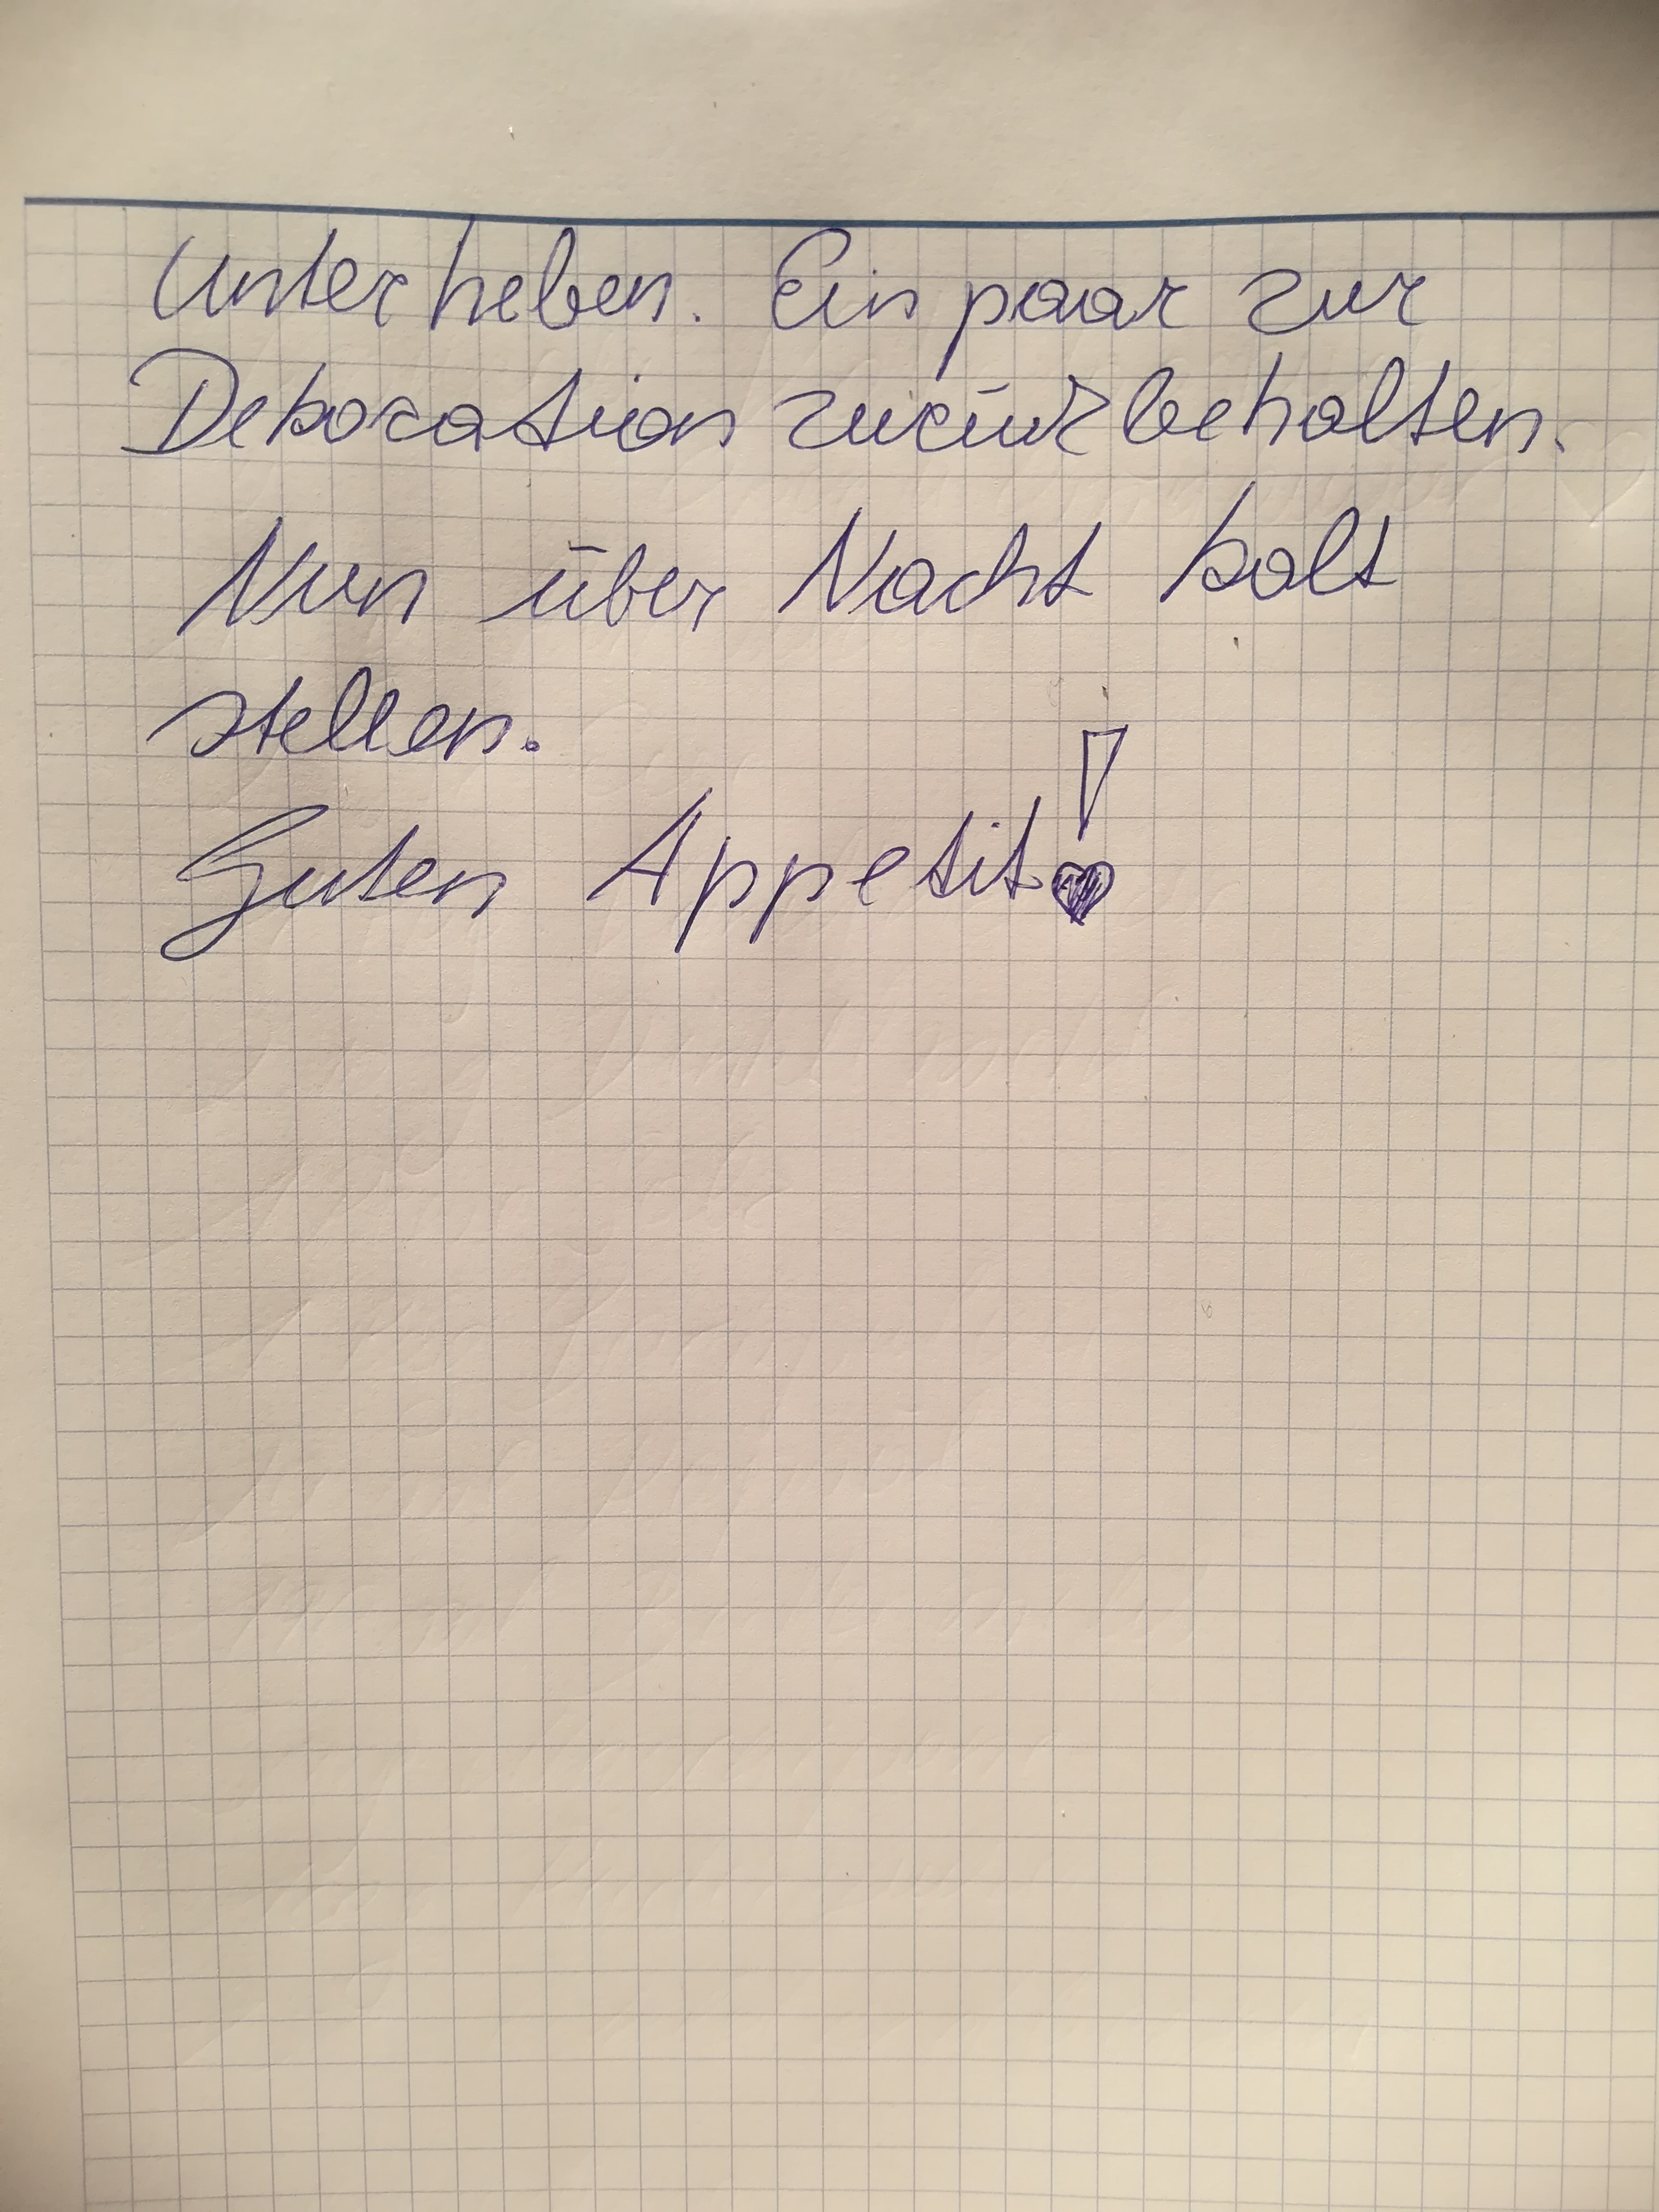 unterheben. Ein paar zur
Dekoration zurückbehalten.
Nun über Nacht kalt
stellen.
Guten Appetit!